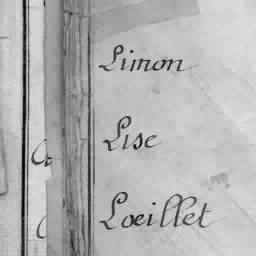 Limon
Lise
Lœillet